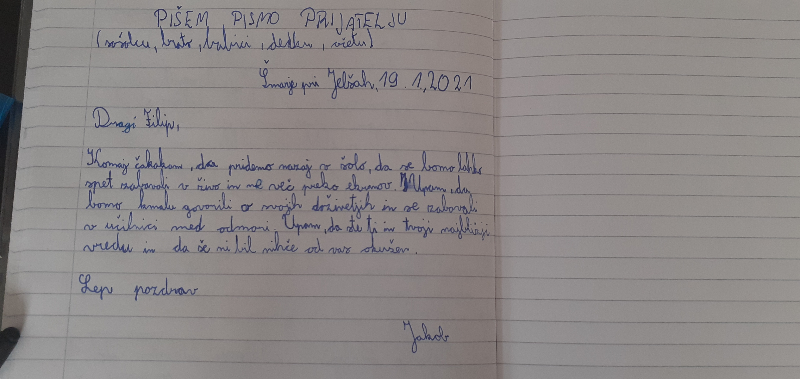 PIŠEM PISMO PRIJATELJU
(sošolcu, bratu, babici, dedku, očetu)
Šmarje pri Jelšah, 19. 1. 2021
Dragi Filip,
Komaj čakam, da pridemo nazaj v šolo, da se bomo lahko
spet zabavali v živo in ne več preko ekranov. Upam, da
bomo kmalu govorili o svojih doživetjih in se zabavali
v učilnici med odmori. Upam, da ste ti in tvoji najbližji
vredu in da še ni bil nihče od vas okužen.
Lep pozdrav
Jakob